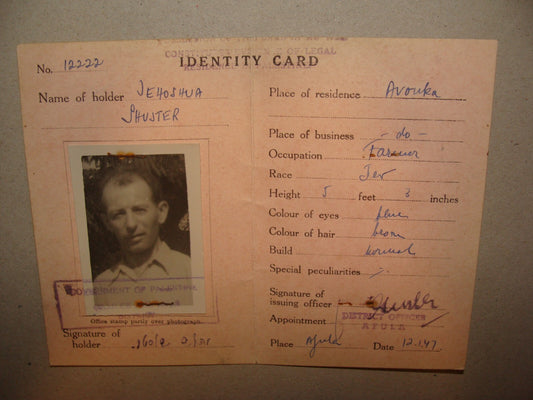 IDENTITY CARD
No. 12222
Name of holder JEHOSHUA
SHUSTER
GOVERNMENT OF PALESTINE
Office stamp partly over photograph.
Signature of
holder
Place of residence Avouka
Place of business - do -
Occupation Farmer
Race Jew
Height 5 feet 3 inches
Colour of eyes blue
Colour of hair brown
Build normal
Special peculiarities -
Signature of
issuing officer
Appointment DISTRICT OFFICER
AFULA
Place Afula Date 12.1.47